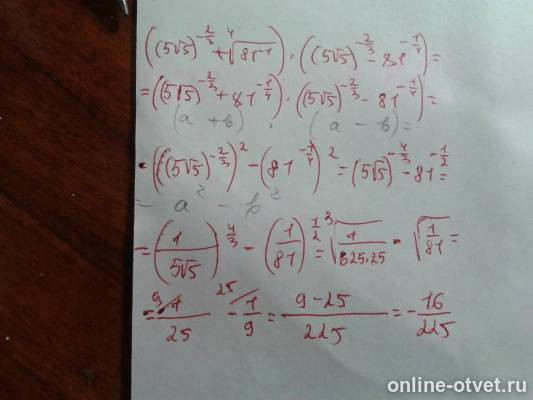 ((5√5)^{-2/3} + ⁴√(81⁻¹)) · ((5√5)^{-2/3} - 81^{-1/4}) =
= ((5√5)^{-2/3} + 81^{-1/4}) · ((5√5)^{-2/3} - 81^{-1/4}) =
(a + b) · (a - b) =
((5√5)^{-2/3})² - (81^{-1/4})² = (5√5)^{-4/3} - 81^{-1/2} =
= a² - b²
= (1/(5√5))^{4/3} - (1/81)^{1/2} = ³√(1/(625·25)) - √(1/81) =
= ⁹1/25 - ²⁵1/9 = (9-25)/225 = -16/225
online-otvet.ru